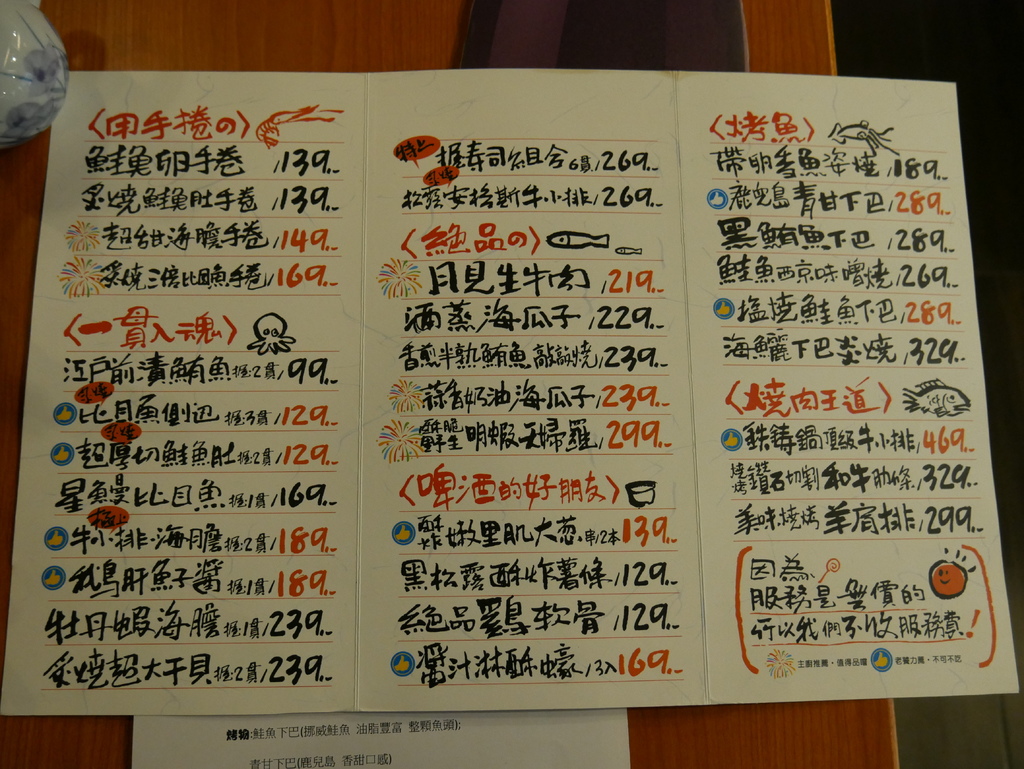 〈用手捲の〉
鮭魚卵手卷 /139.-
炙燒鮭魚肚手卷 /139.-
超甜海膽手卷 /149.-
炙燒三倍比目魚手卷 /169.-
〈一貫入魂〉
江戶前漬鮪魚握2貫/99.-
炙燒
比目魚側邊握3貫/129.-
炙燒
超厚切鮭魚肚握2貫/129.-
星鰻比目魚握1貫/169.-
極上
牛小排海膽握2貫/189.-
鵝肝魚子醬握1貫/189.-
牡丹蝦海膽握1貫/239.-
炙燒超大干貝握2貫/239.-
特上 握壽司組合6貫/269.-
炙燒
松露安格斯牛小排/269.-
〈絕品の〉
月見生牛肉 /219.-
酒蒸海瓜子 /229.-
香煎半熟鮪魚敲敲燒/239.-
蒜香奶油海瓜子/239.-
酥脆野生明蝦天婦羅/299.-
〈啤酒的好朋友〉
酥炸嫩里肌大葱.串/2本 139.-
黑松露酥炸薯條 /129.-
絕品雞軟骨 /129.-
醬汁淋酥蠔/3入169.-
〈烤魚〉
帶卵香魚姿燒/189.-
鹿兒島青甘下巴/289.-
黑鮪魚下巴 /289.-
鮭魚西京味噌燒/269.-
塩燒鮭魚下巴/289.-
海鱺下巴炎燒 /329.-
〈燒肉王道〉
鉄鑄鍋頂級牛小排/469.-
燒烤鑽石切割和牛肋條/329.-
美味燒烤羊肩排/299.-
因為
服務是無價的
所以我們不收服務費!
主廚推薦，值得品嚐 老饕力薦，不可不吃
烤物:鮭魚下巴(挪威鮭魚 油脂豐富 整顆魚頭);
青甘下巴(鹿兒島 香甜口感)